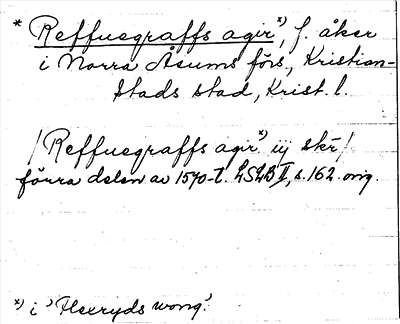 * Reffuegraffs agir*), f. åker
i Norra Åsums förs, Kristian-
stads stad, Krist. l.
/Reffuegraffs agir*) iij skr̄/
förra delen av 1570-t. LSLB II, s. 162. orig.
*) i 'Flceryds wong'.